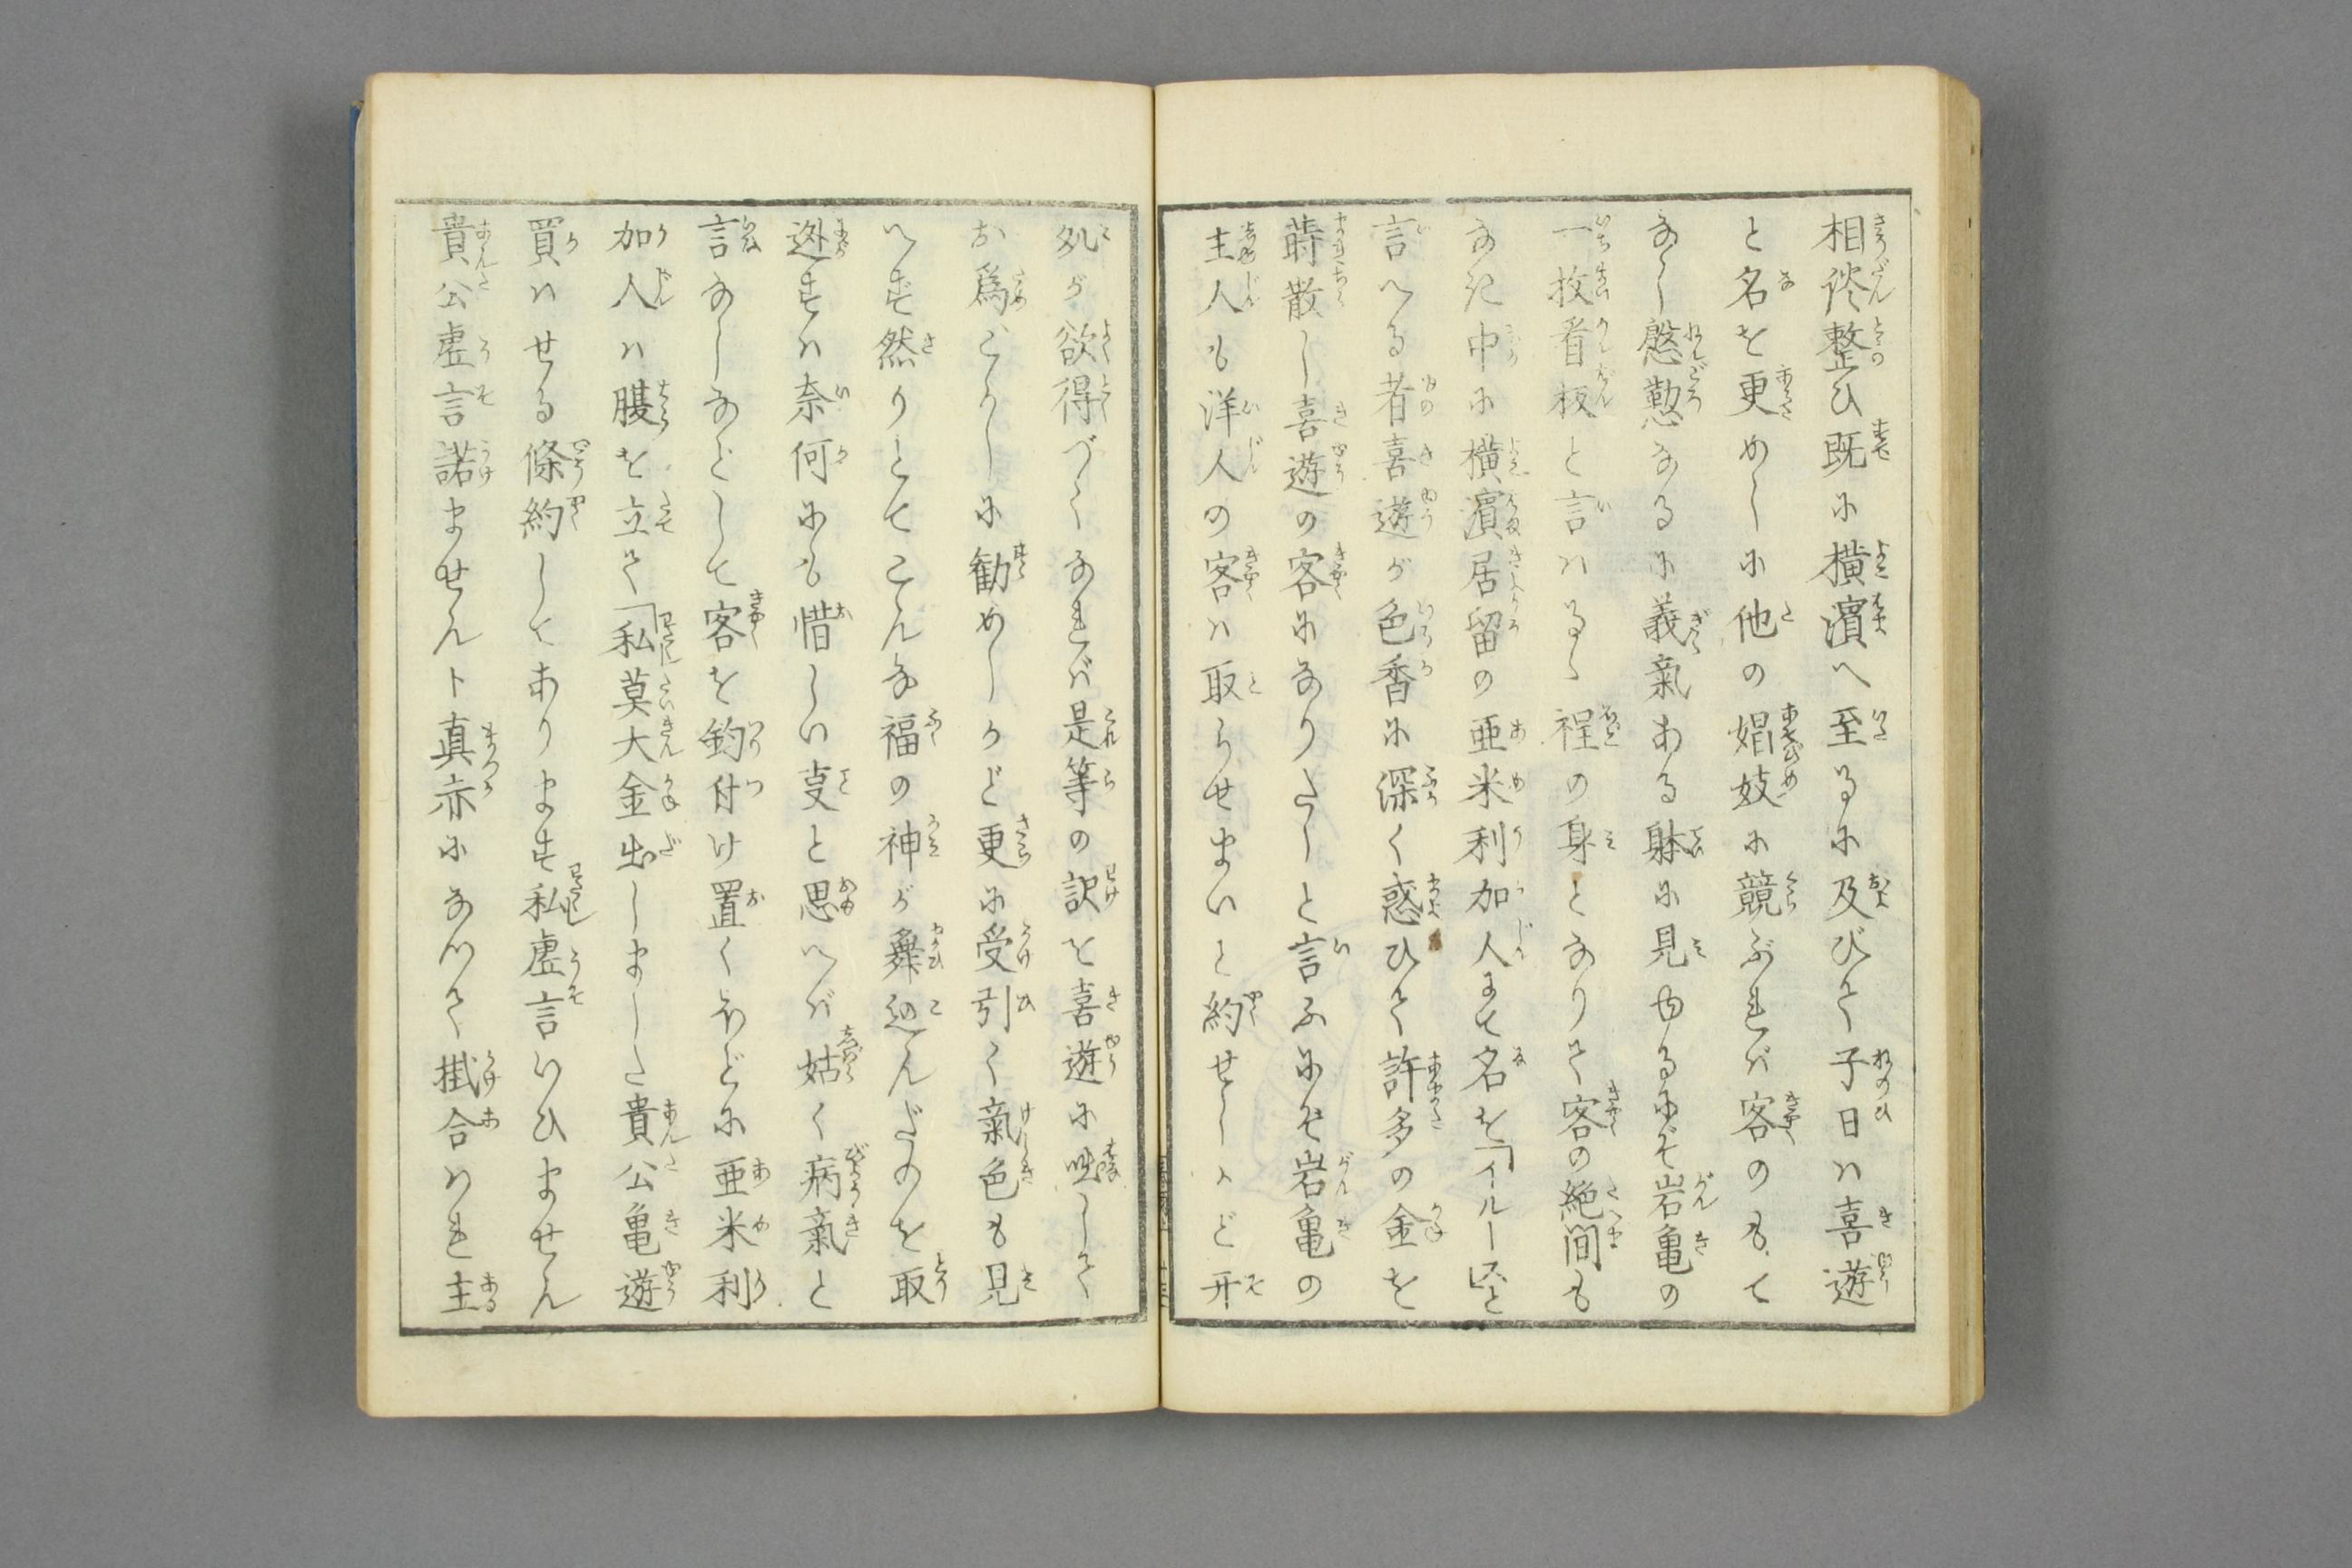 相談整ひ既に横濱へ至るに及びて子日ハ喜遊
と名を更めしに他の娼妓に競ぶれバ客のもて
なし慇懃なるに義氣ある躰に見ゆるにぞ岩亀の
一枚看板と言ハるゝ程の身となりて客の絶間も
なき中に横濱居留の亜米利加人にて名を「イルース」と
言へる者喜遊が色香に深く惑ひて許多の金を
蒔散し喜遊の客になりたしと言ふにぞ岩亀の
主人も洋人の客ハ取らせまいと約せしかど开
処が欲得づくなれバ是等の訳を喜遊に咄して
お為ごかしに勧めしかど更に受引く氣色も見
へず然りとてこんな福の神が舞込んだのを取
迯すハ奈何にも惜しい㕝と思へバ姑く病氣と
言なしなどして客を釣付け置くほどに亜米利
加人ハ腹を立て「私莫大金出しました貴公亀遊
買ハせる條約してあります私虚言いひません
貴公虚言諾ませんト真赤になつて掛合ハれ主